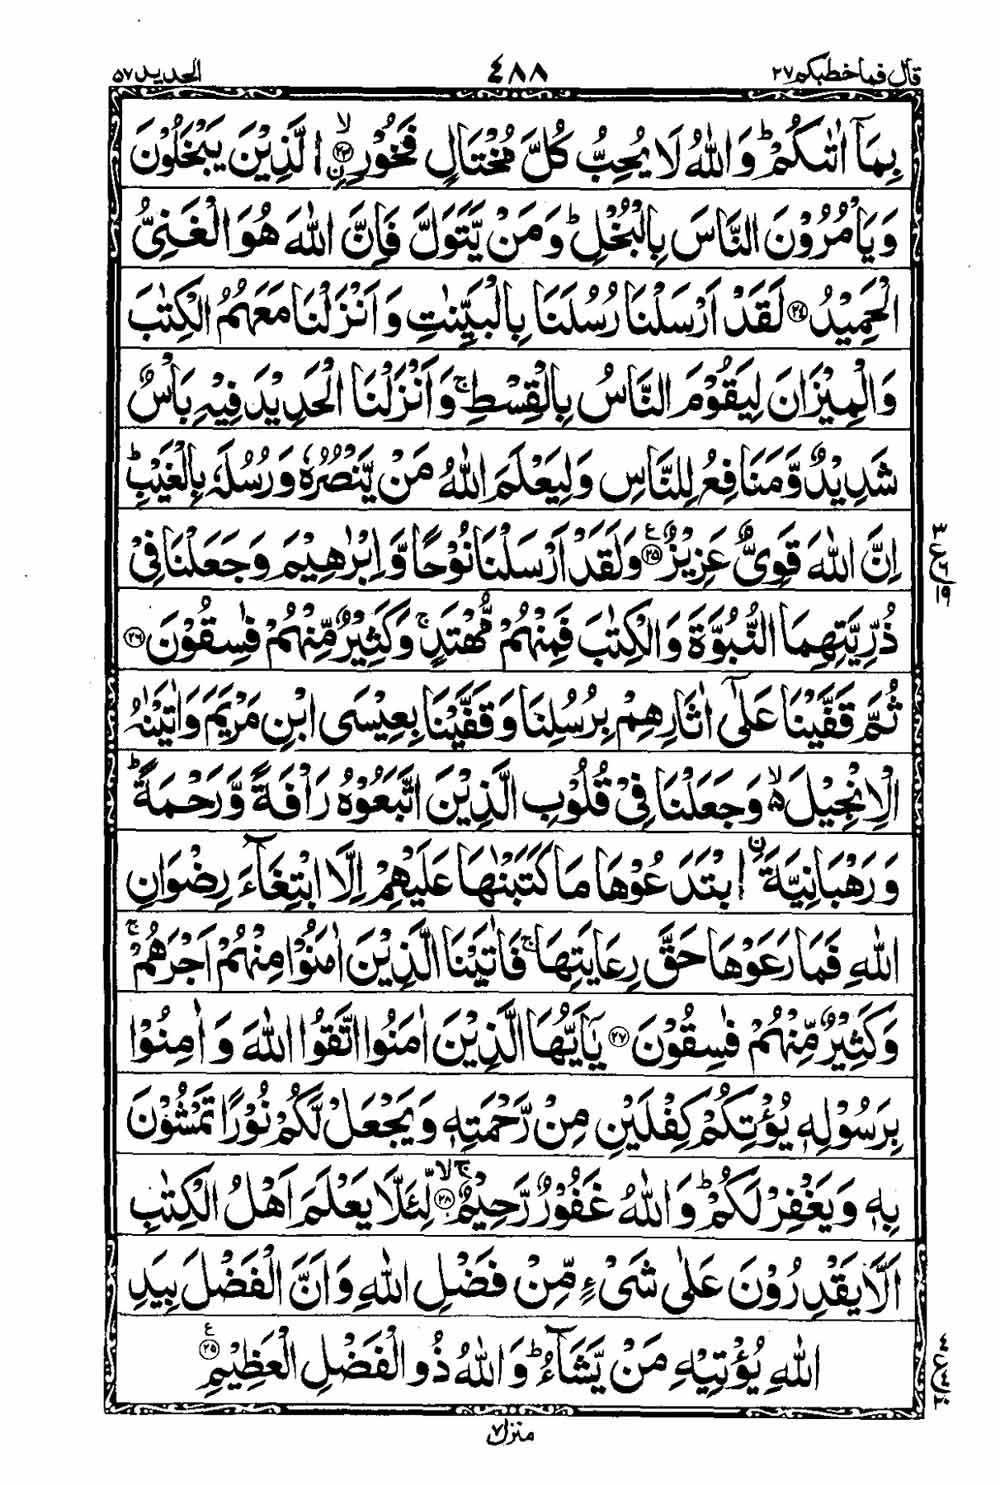 قال فما خطبكم ٢٧ ٤٨٨ الحديد ٥٧
بِمَاۤ اٰتٰىكُمْ ؕ وَاللّٰهُ لَا يُحِبُّ كُلَّ مُخْتَالٍ فَخُوْرِ ۙ﴿٢٣﴾ ا۟لَّذِيْنَ يَبْخَلُوْنَ
وَيَاْمُرُوْنَ النَّاسَ بِالْبُخْلِ ؕ وَمَنْ يَّتَوَلَّ فَاِنَّ اللّٰهَ هُوَ الْغَنِىُّ
الْحَمِيْدُ ﴿٢٤﴾ لَقَدْ اَرْسَلْنَا رُسُلَنَا بِالْبَيِّنٰتِ وَاَنْزَلْنَا مَعَهُمُ الْكِتٰبَ
وَالْمِيْزَانَ لِيَقُوْمَ النَّاسُ بِالْقِسْطِ ۚ وَاَنْزَلْنَا الْحَدِيْدَ فِيْهِ بَاْسٌ
شَدِيْدٌ وَّمَنَافِعُ لِلنَّاسِ وَلِيَعْلَمَ اللّٰهُ مَنْ يَّنْصُرُهٗ وَرُسُلَهٗ بِالْغَيْبِ ؕ
اِنَّ اللّٰهَ قَوِىٌّ عَزِيْزٌ ﴿٢٥﴾ ع وَلَقَدْ اَرْسَلْنَا نُوْحًا وَّاِبْرٰهِيْمَ وَجَعَلْنَا فِىْ
٣ ع ٦ ١٩
ذُرِّيَّتِهِمَا النُّبُوَّةَ وَالْكِتٰبَ فَمِنْهُمْ مُّهْتَدٍ ۚ وَكَثِيْرٌ مِّنْهُمْ فٰسِقُوْنَ ﴿٢٦﴾
ثُمَّ قَفَّيْنَا عَلٰٓى اٰثَارِهِمْ بِرُسُلِنَا وَقَفَّيْنَا بِعِيْسَى ابْنِ مَرْيَمَ وَاٰتَيْنٰهُ
الْاِنْجِيْلَ ۙ۬ وَجَعَلْنَا فِىْ قُلُوْبِ الَّذِيْنَ اتَّبَعُوْهُ رَاْفَةً وَّرَحْمَةً ؕ
وَرَهْبَانِيَّةَ ا۟بْتَدَعُوْهَا مَا كَتَبْنٰهَا عَلَيْهِمْ اِلَّا ابْتِغَآءَ رِضْوَانِ
اللّٰهِ فَمَا رَعَوْهَا حَقَّ رِعَايَتِهَا ۚ فَاٰتَيْنَا الَّذِيْنَ اٰمَنُوْا مِنْهُمْ اَجْرَهُمْ ۚ
وَكَثِيْرٌ مِّنْهُمْ فٰسِقُوْنَ ﴿٢٧﴾ يٰۤاَيُّهَا الَّذِيْنَ اٰمَنُوا اتَّقُوا اللّٰهَ وَاٰمِنُوْا
بِرَسُوْلِهٖ يُؤْتِكُمْ كِفْلَيْنِ مِنْ رَّحْمَتِهٖ وَيَجْعَلْ لَّكُمْ نُوْرًا تَمْشُوْنَ
بِهٖ وَيَغْفِرْ لَكُمْ ؕ وَاللّٰهُ غَفُوْرٌ رَّحِيْمٌ ۚۙ﴿٢٨﴾ لِّئَلَّا يَعْلَمَ اَهْلُ الْكِتٰبِ
اَلَّا يَقْدِرُوْنَ عَلٰى شَىْءٍ مِّنْ فَضْلِ اللّٰهِ وَاَنَّ الْفَضْلَ بِيَدِ
اللّٰهِ يُؤْتِيْهِ مَنْ يَّشَآءُ ؕ وَاللّٰهُ ذُو الْفَضْلِ الْعَظِيْمِ ﴿٢٥﴾ ع
منزل ٧